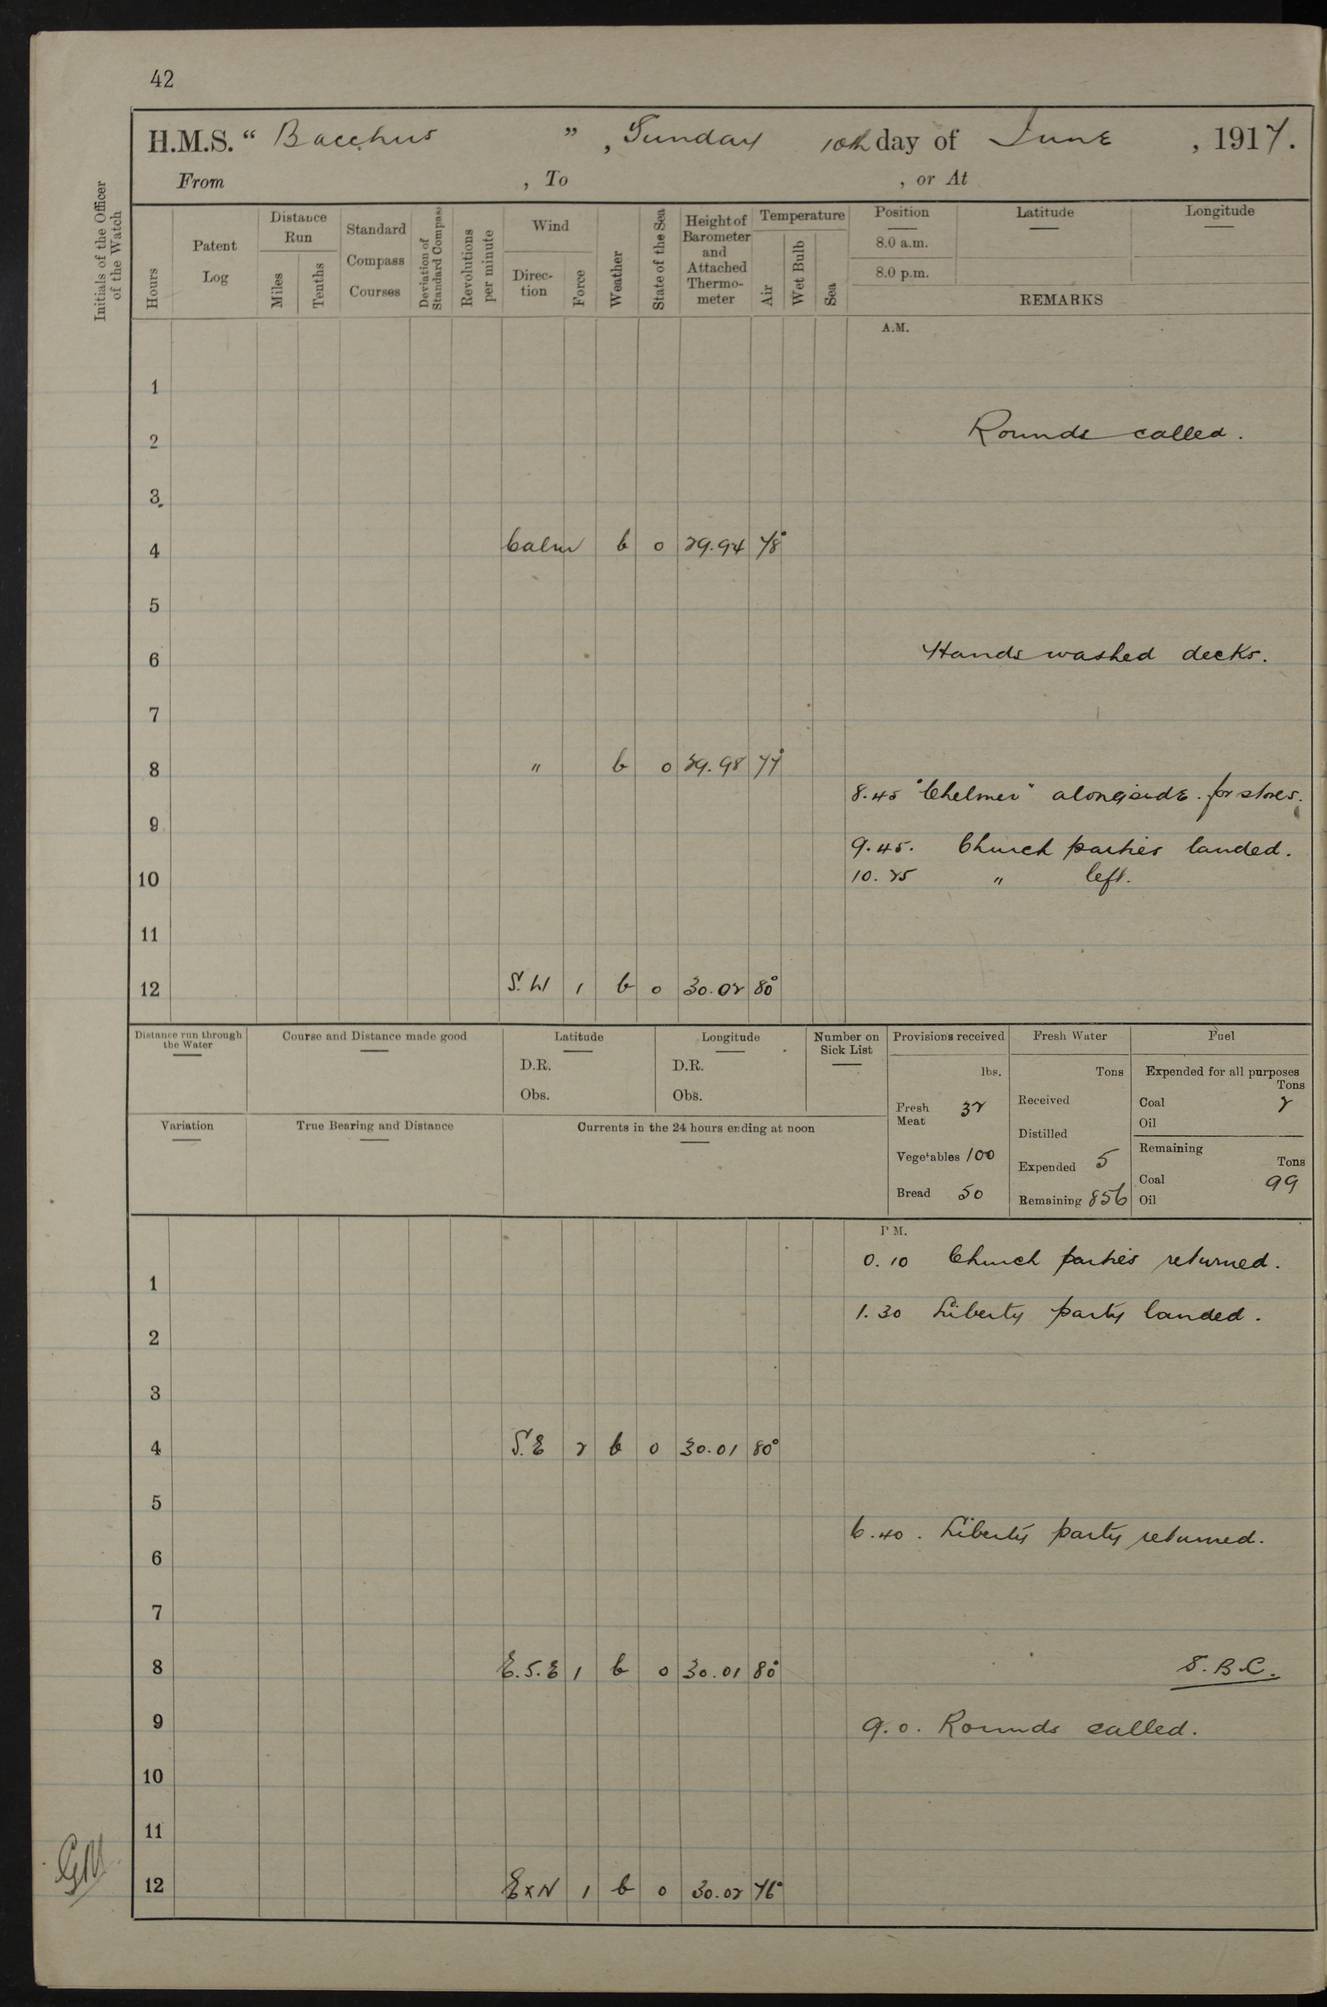 42
H.M.S. “ Bacchus ” , Sunday 10th day of June , 1917.
From , To , or At
Initials of the Officer of the Watch
Hours
Patent Log
Distance Run
Miles
Tenths
Standard Compass Courses
Deviation of Standard Compass
Revolutions per minute
Wind
Direc-tion
Force
Weather
State of the Sea
Height of Barometer and Attached Thermo-meter
Temperature
Air
Wet Bulb
Sea
Position Latitude Longitude
8.0 a.m.
8.0 p.m.
REMARKS
A.M.
1
2 Rounds called.
3
4 Calm b 0 29.94 78°
5
6 Hands washed decks.
7
8 " b 0 29.98 77°
8.45 "Chelmer" alongside. for stores.
9
9.45. Church parties landed.
10 10.25 " left.
11
12 S.W 1 b 0 30.02 80°
Distance run through the Water
Course and Distance made good
Latitude
D.R.
Obs.
Longitude
D.R.
Obs.
Number on Sick List
Provisions received
lbs.
Fresh Meat 32
Vegetables 100
Bread 50
Fresh Water
Tons
Received
Distilled
Expended 5
Remaining 856
Fuel
Expended for all purposes
Tons
Coal 2
Oil
Remaining
Tons
Coal 99
Oil
Variation
True Bearing and Distance
Currents in the 24 hours ending at noon
P.M.
0.10 Church parties returned.
1
1.30 Liberty party landed.
2
3
4 S.E 2 b 0 30.01 80°
5
6.40. Liberty party returned.
6
7
8 E.S.E 1 b 0 30.01 80° S.B.C.
9 9.0. Rounds called.
10
11
12 ExN 1 b 0 30.02 76°